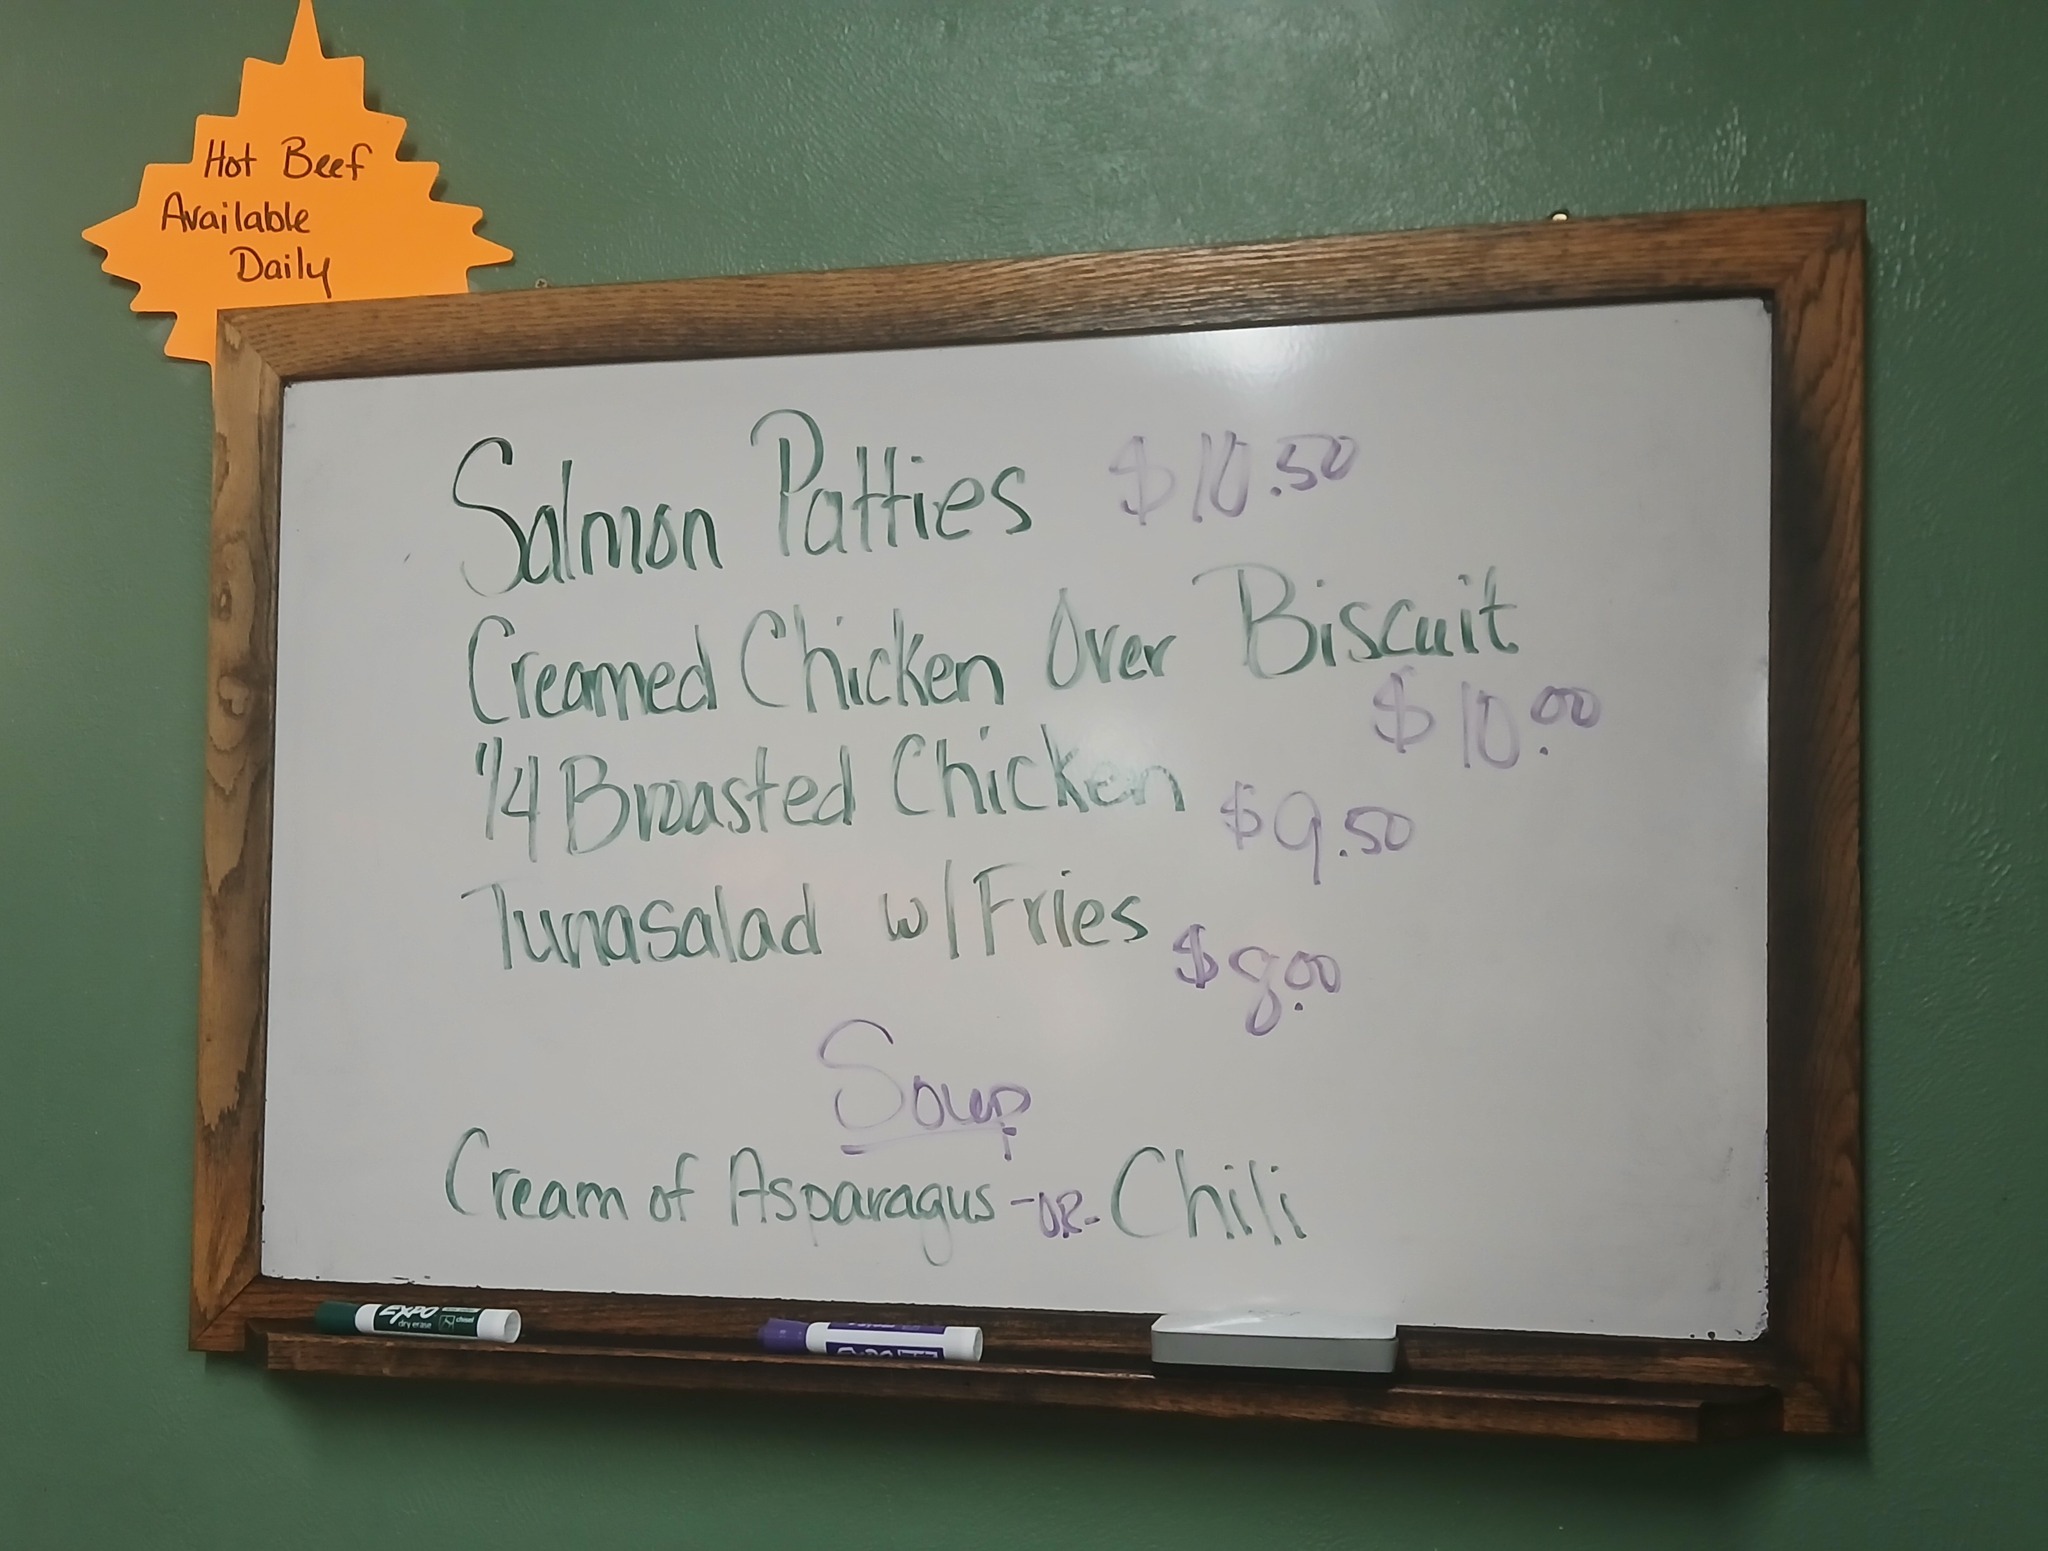 Hot Beef
Available
Daily
Salmon Patties $10.50
Creamed Chicken Over Biscuit
$10.00
1/4 Broasted Chicken $9.50
Tunasalad w/ Fries $8.00
Soup
Cream of Asparagus -OR- Chili
EXPO
dry erase
chisel
EXPO